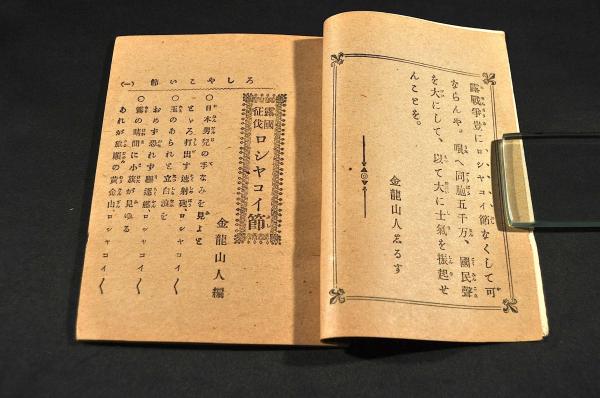 露戰爭豈にロシヤコイ節なくして可
ならんや。唄へ同胞五千万、國民聲
を大にして、以て大に士氣を振起せ
んことを。
金龍山人志るす
ろしやこい節 (一)
露國
征伐
ロシヤコイ節
金龍山人編
〇日本男兒の手なみを見よと
どんと打出す速射砲ロシヤコイ〱
〇玉のあられで立白浪を
おめず恐れず驅逐艦ロシヤコイ〱
〇霧の晴間に小旗が見ゆる
あれが旅順の黄金山ロシヤコイ〱